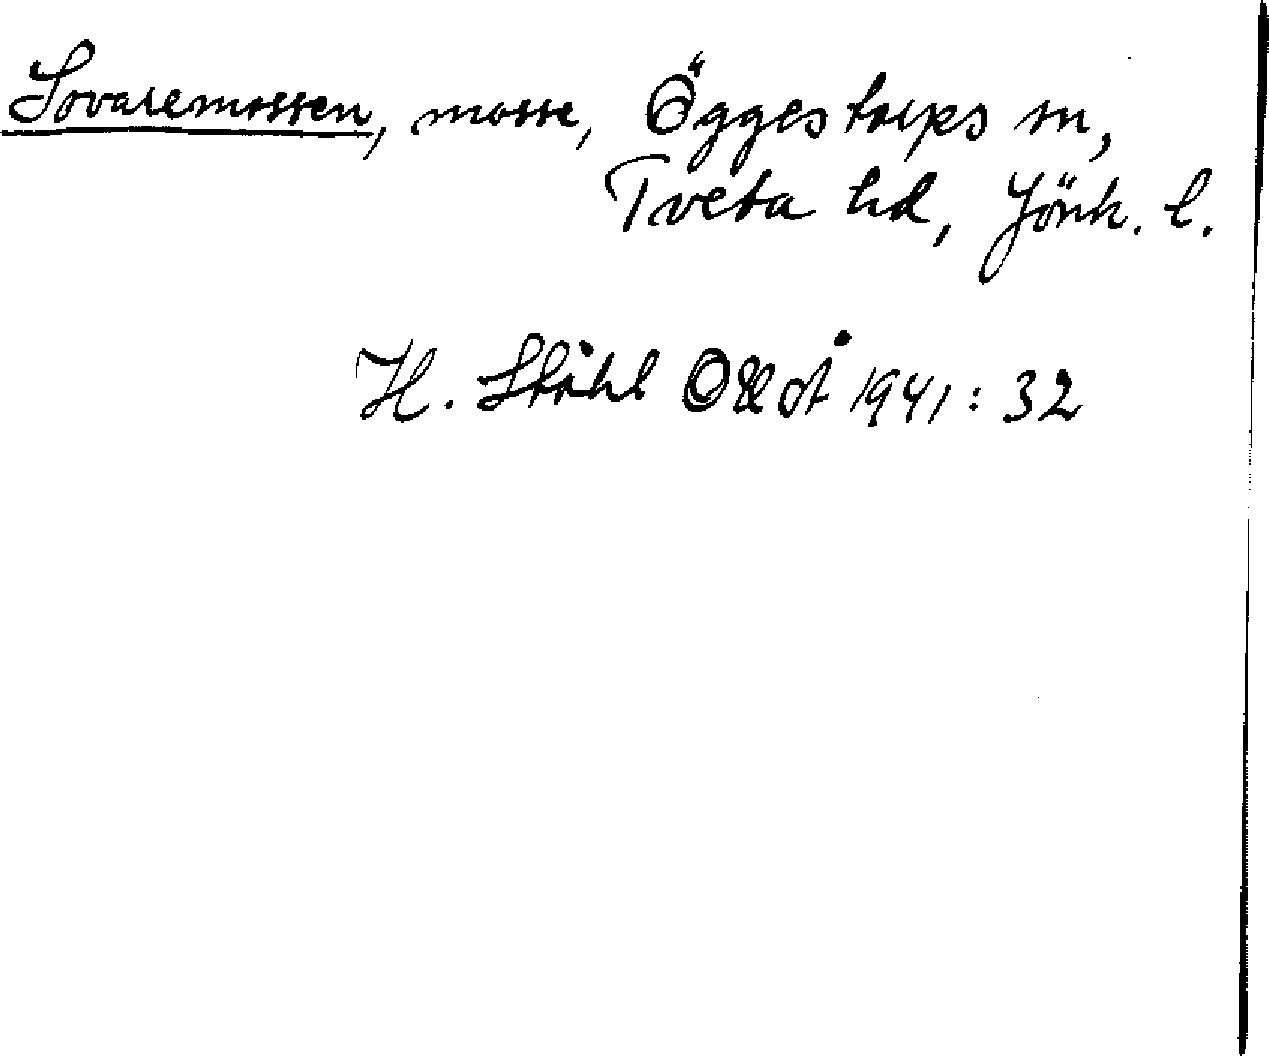 Sovaremossen, mosse, Öggestorps sn,
Tveta hd, Jönk. l.
H. Ståhl O&Å 1941: 32